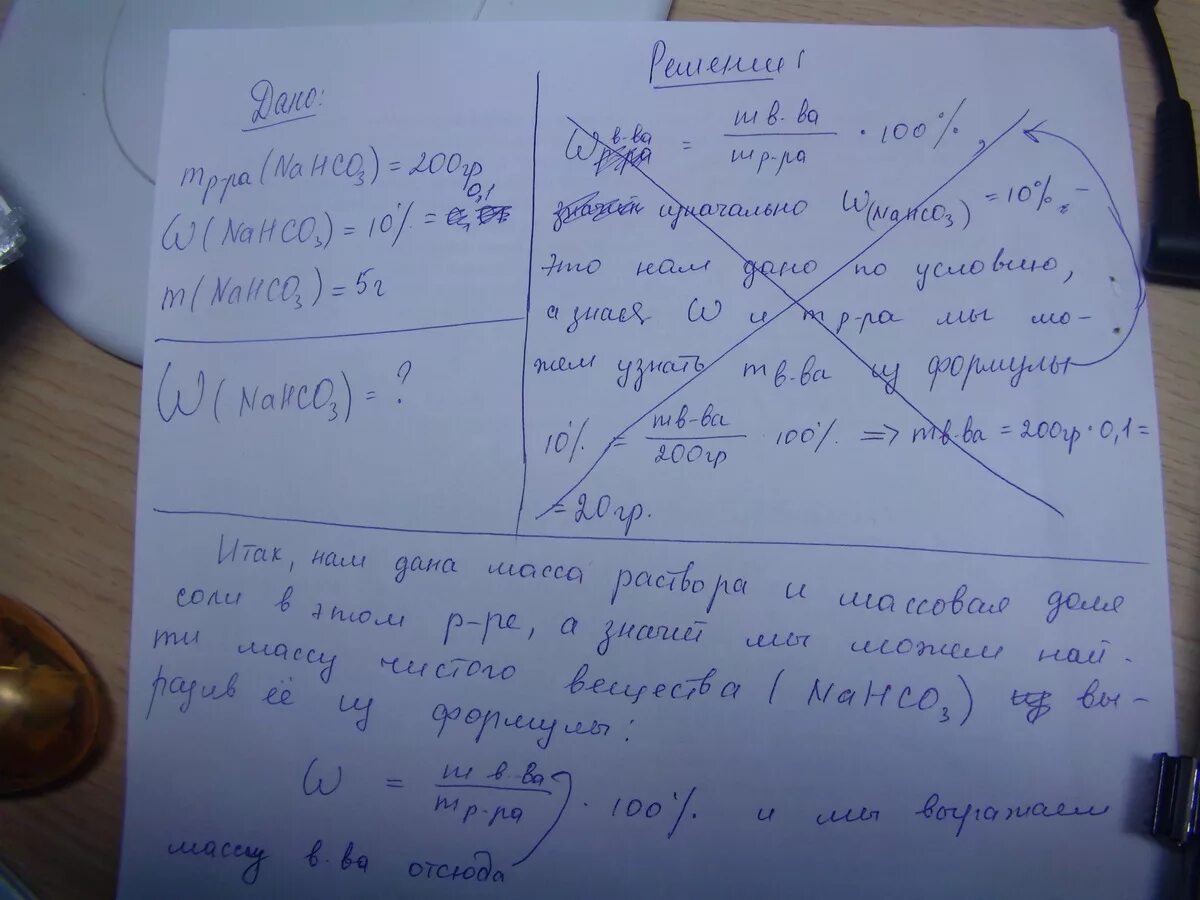 Дано:
mр-ра (NaHCO₃) = 200гр
ω (NaHCO₃) = 10% = 0,1
m (NaHCO₃) = 5г
ω (NaHCO₃) = ?
Решение
ω в-ва = m в-ва / mр-ра · 100%,
изначально ω(NaHCO₃) = 10% -
это нам дано по условию,
а зная ω и mр-ра мы мо-
жем узнать mв-ва из формулы
10% = mв-ва / 200гр · 100% => mв-ва = 200гр · 0,1 =
= 20гр.
Итак, нам дана масса раствора и массовая доля
соли в этом р-ре, а значит мы можем най-
ти массу чистого вещества (NaHCO₃) вы-
разив её из формулы:
ω = m в-ва / mр-ра · 100% и мы выражаем
массу в-ва отсюда